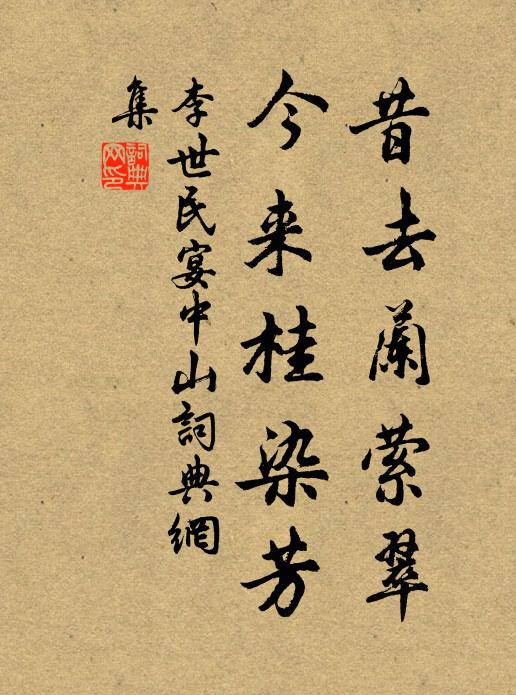 昔去蘭萦翠
今来桂染芳
李世民宴中山詞典網
集
詞典
网印